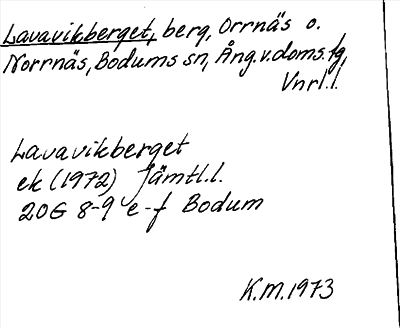 Lavavikberget, berg, Orrnäs o.
Norrnäs, Bodums sn, Ång.v.doms.tg,
Vnrl.l.
Lavavikberget
ek (1972) Jämtl.l.
20G 8-9 e-f Bodum
K.M.1973